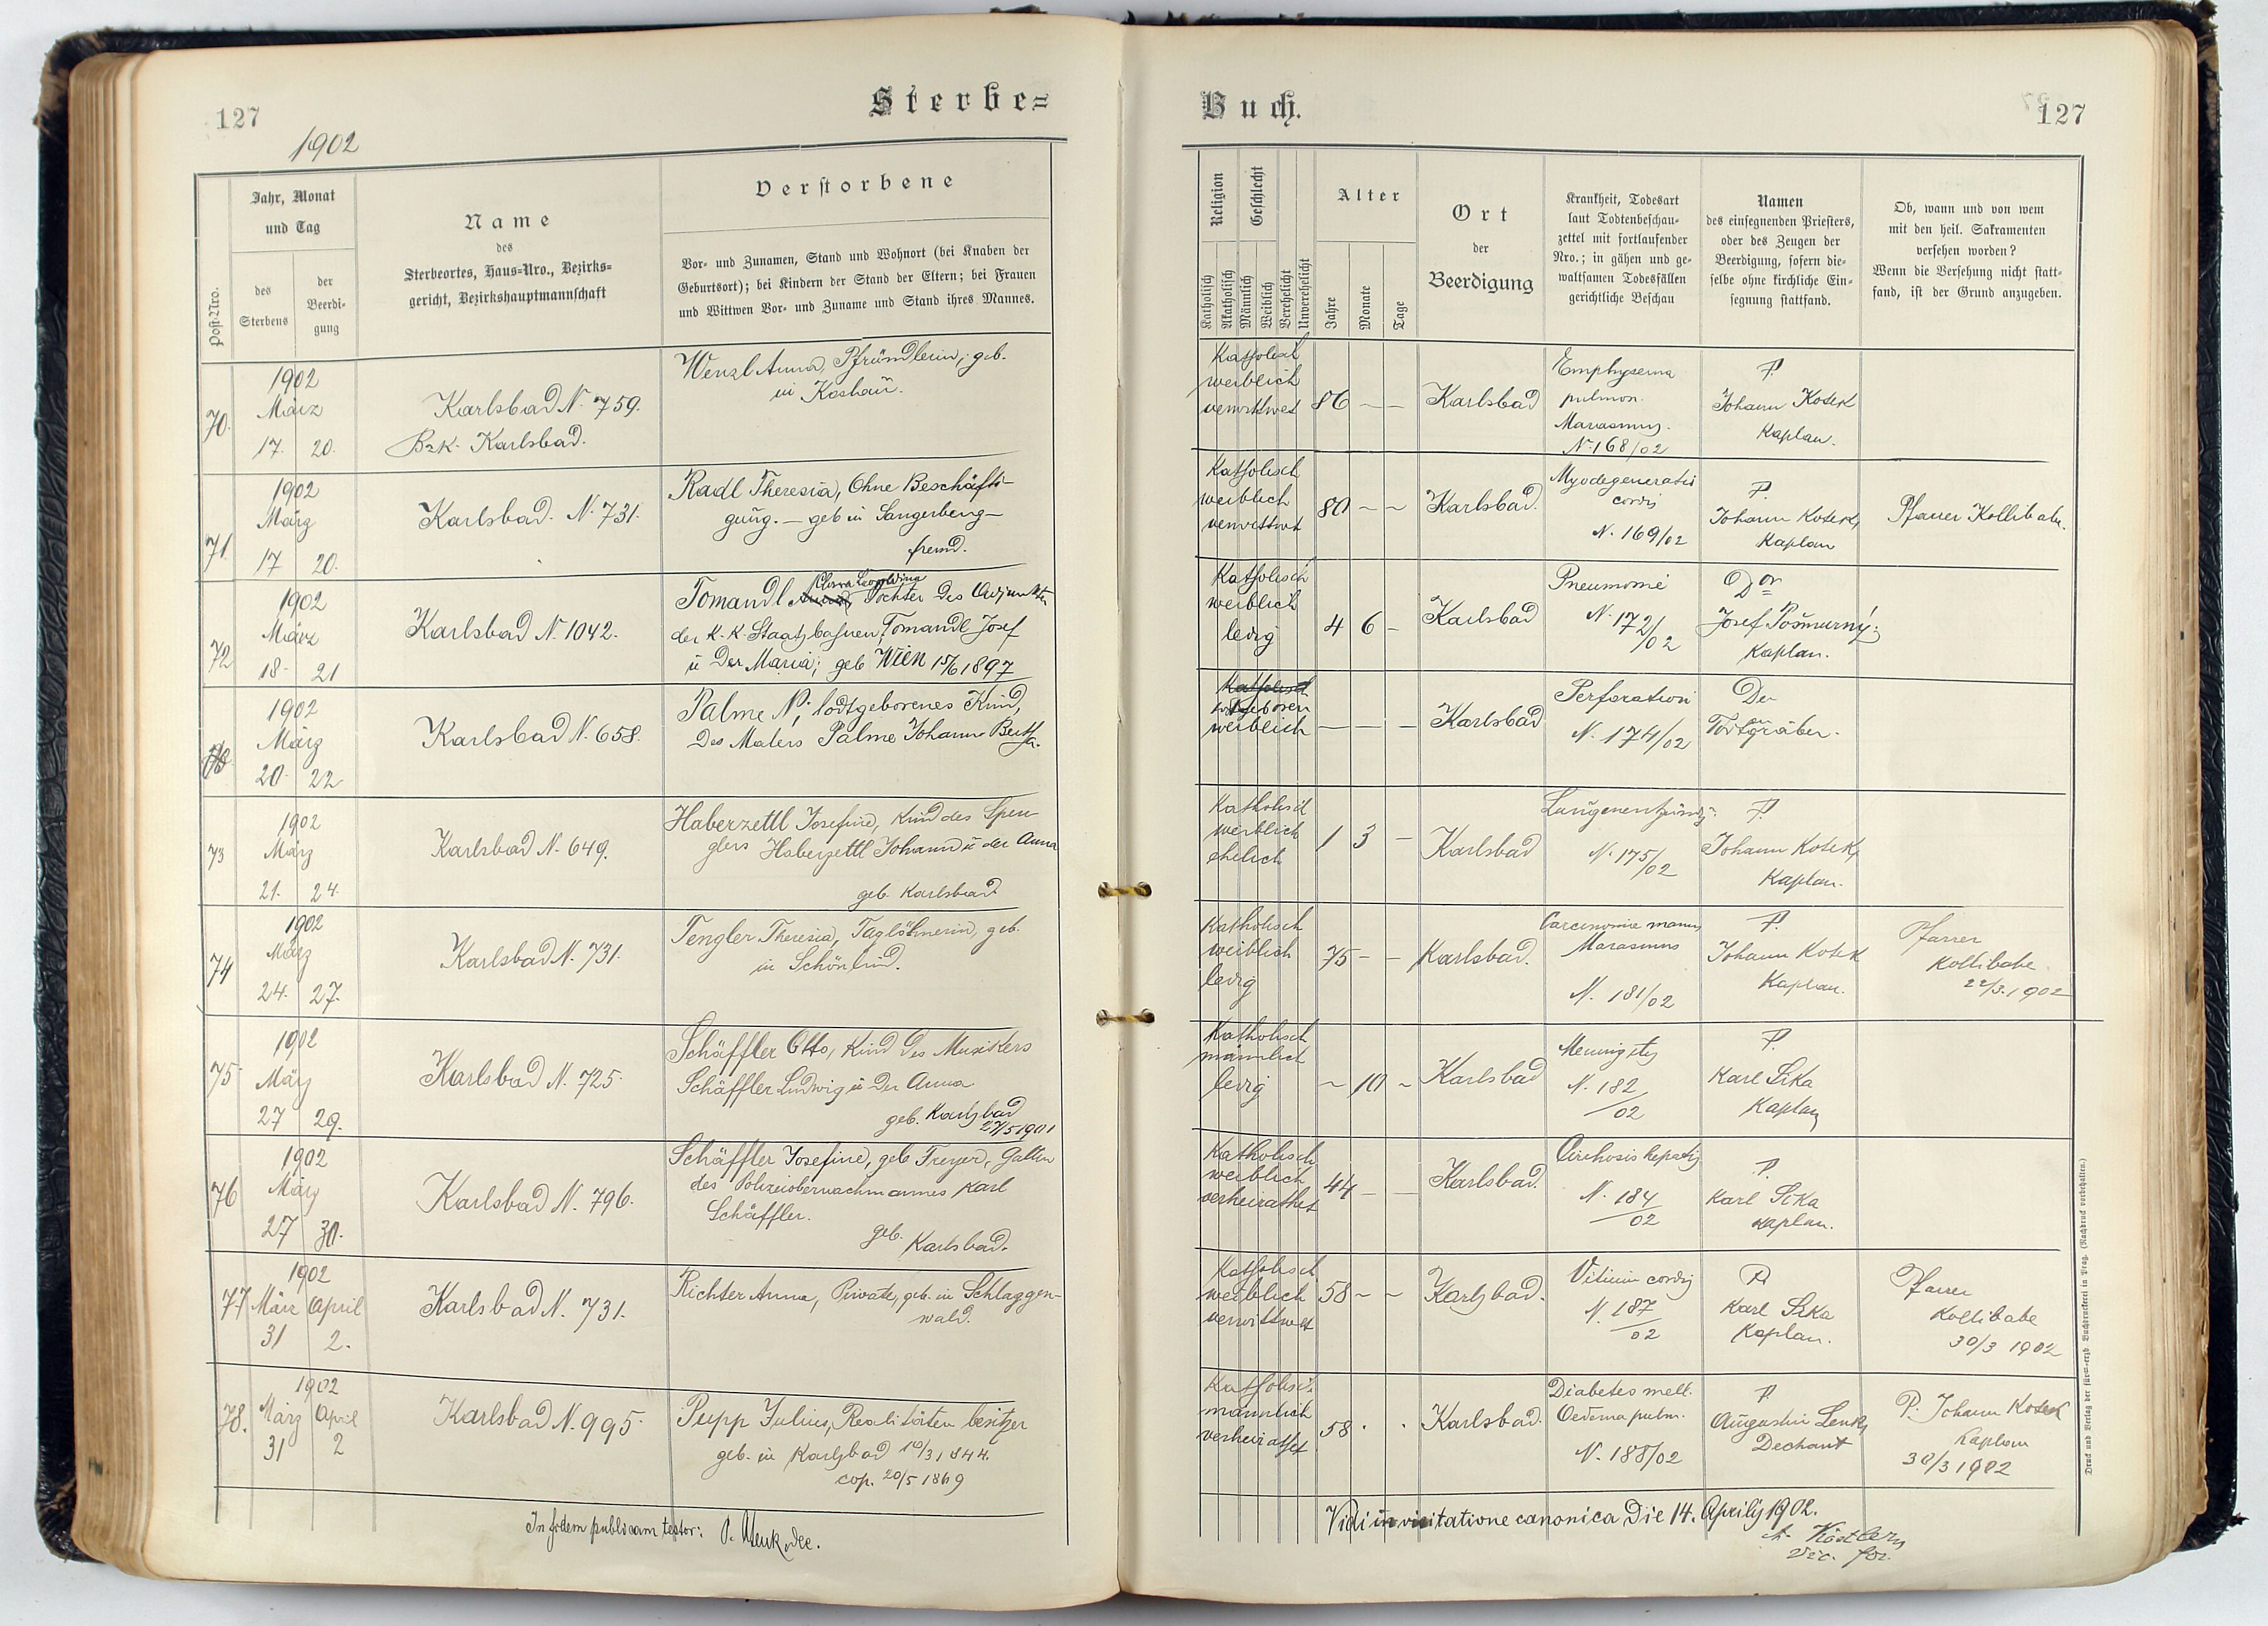 127
1902
Sterbe=
Post-Nro.
Jahr, Monat
und Tag
des
Sterbens
der
Beerdi-
gung
Name
des
Sterbeortes, Haus=Nro., Bezirks=
gericht, Bezirkshauptmannschaft
Verstorbene
Vor- und Zunamen, Stand und Wohnort (bei Knaben der
Geburtsort); bei Kindern der Stand der Eltern; bei Frauen
und Wittwen Vor- und Zuname und Stand ihres Mannes.
70.
1902
März
17. 20.
Karlsbad N. 759.
Bzk. Karlsbad.
Wenzl Anna, Pfründlerin, geb.
in Koshau.
71.
1902
März
17 20.
Karlsbad. N. 731.
Radl Theresia, Ohne Beschäfti-
gung. – geb in Sangerberg –
fremd.
72
1902
März
18. 21
Karlsbad N. 1042.
Leopoldina
Tomandl Tochter des Adjunkten
der K. K. Staatsbahnen, Tomandl Josef
u der Maria; geb Wien 15/6 1897
1902
März
20. 22
Karlsbad N. 658.
Palme N; todtgeborenes Kind,
des Malers Palme Johann Bertha.
73
1902
März
21. 24.
Karlsbad N. 649.
Haberzettl Josefine, Kind des Spen-
glers Haberzettl Johann u der Anna
geb. Karlsbad
74
1902
März
24. 27.
Karlsbad N. 731.
Tengler Theresia, Taglöhnerin, geb.
in Schönlind.
75
1902
März
27 29.
Karlsbad N. 725.
Schäffler Otto, Kind des Musikers
Schäffler Ludwig u der Anna
geb. Karlsbad
27/5 1901
76
1902
März
27 30.
Karlsbad N. 796.
Schäffler Josefine, geb. Freyer, Gattin
des Polizeioberwachmannes Karl
Schäffler.
geb.
Karlsbad.
77
1902
März April
31 2.
Karlsbad N. 731.
Richter Anna, Private, geb. in Schlaggen-
wald.
78.
1902
März April
31 2
Karlsbad N. 995.
Pupp Julius, Realitäten besitzer
geb. in Karlsbad 10/3 1844.
cop. 20/5 1869
In fidem publicam testor:
Buch.
127
Religion
Katholisch
Akatholisch
Geschlecht
Männlich
Weiblich
Verehelicht
Unverehelicht
Alter
Jahre
Monate
Tage
Ort
der
Beerdigung
Krankheit, Todesart
laut Todtenbeschau-
zettel mit fortlaufender
Nro.; in gähen und ge-
waltsamen Todesfällen
gerichtliche Beschau
Namen
des einsegnenden Priesters,
oder des Zeugen der
Beerdigung, sofern die-
selbe ohne kirchliche Ein-
segnung stattfand.
Ob, wann und von wem
mit den heil. Sakramenten
versehen worden?
Wenn die Versehung nicht statt-
fand, ist der Grund anzugeben.
Katholisch
weiblich
verwittwet
86 – –
Karlsbad
Emphysema
pulmon.
Marasmus.
N. 168/02
P.
Johann Kosek
Kaplan.
Katholisch
weiblich
verwittwet
80 – –
Karlsbad.
Myodegeneratio
cordis
N. 169/02
P.
Johann Kosek,
Kaplan
Pfarrer Kollibabe.
Katholisch
weiblich
ledig
4 6 –
Karlsbad
Pneumonie
N. 172/02
Dor
Josef Pošmurný;
Kaplan.
Katholisch
todtgeboren
weiblich
– – –
Karlsbad
Perforation
N. 174/02
Der
Todtengräber.
Katholisch
weiblich
ehelich
1 3 –
Karlsbad
Lungenentzündg.
N. 175/02
P.
Johann Kosek,
Kaplan.
Katholisch
weiblich
ledig
75 – –
Karlsbad.
Carcinomie mamm
Marasmus
N. 181/02
P.
Johann Kosek
Kaplan.
Pfarrer
Kollibabe
22/3. 1902
Katholisch
männlich
ledig
– 10 –
Karlsbad
Meningitis
N. 182
/02
P.
Karl Sika
Kaplan
Katholisch
weiblich
verheirathet
44 – –
Karlsbad.
Cirrhosis hepatis
N. 184
/02
P.
Karl Sika
Kaplan.
Katholisch
weiblich
verwittwet
58 – –
Karlsbad.
Vitium cordis
N. 187
/02
P.
Karl Sika
Kaplan.
Pfarrer
Kollibabe
30/3 1902
Katholisch
männlich
verheirathet
58 · ·
Karlsbad.
Diabetes mell.
Oedema pulm.
N. 188/02
P.
Augustin Lenk,
Dechant
P. Johann Kosek
Kaplan
30/3 1902
Vidi in visitatione canonica die 14. Aprilis 1902.
Druck und Verlag der fürst-erzb. Buchdruckerei in Prag. (Nachdruck vorbehalten.)